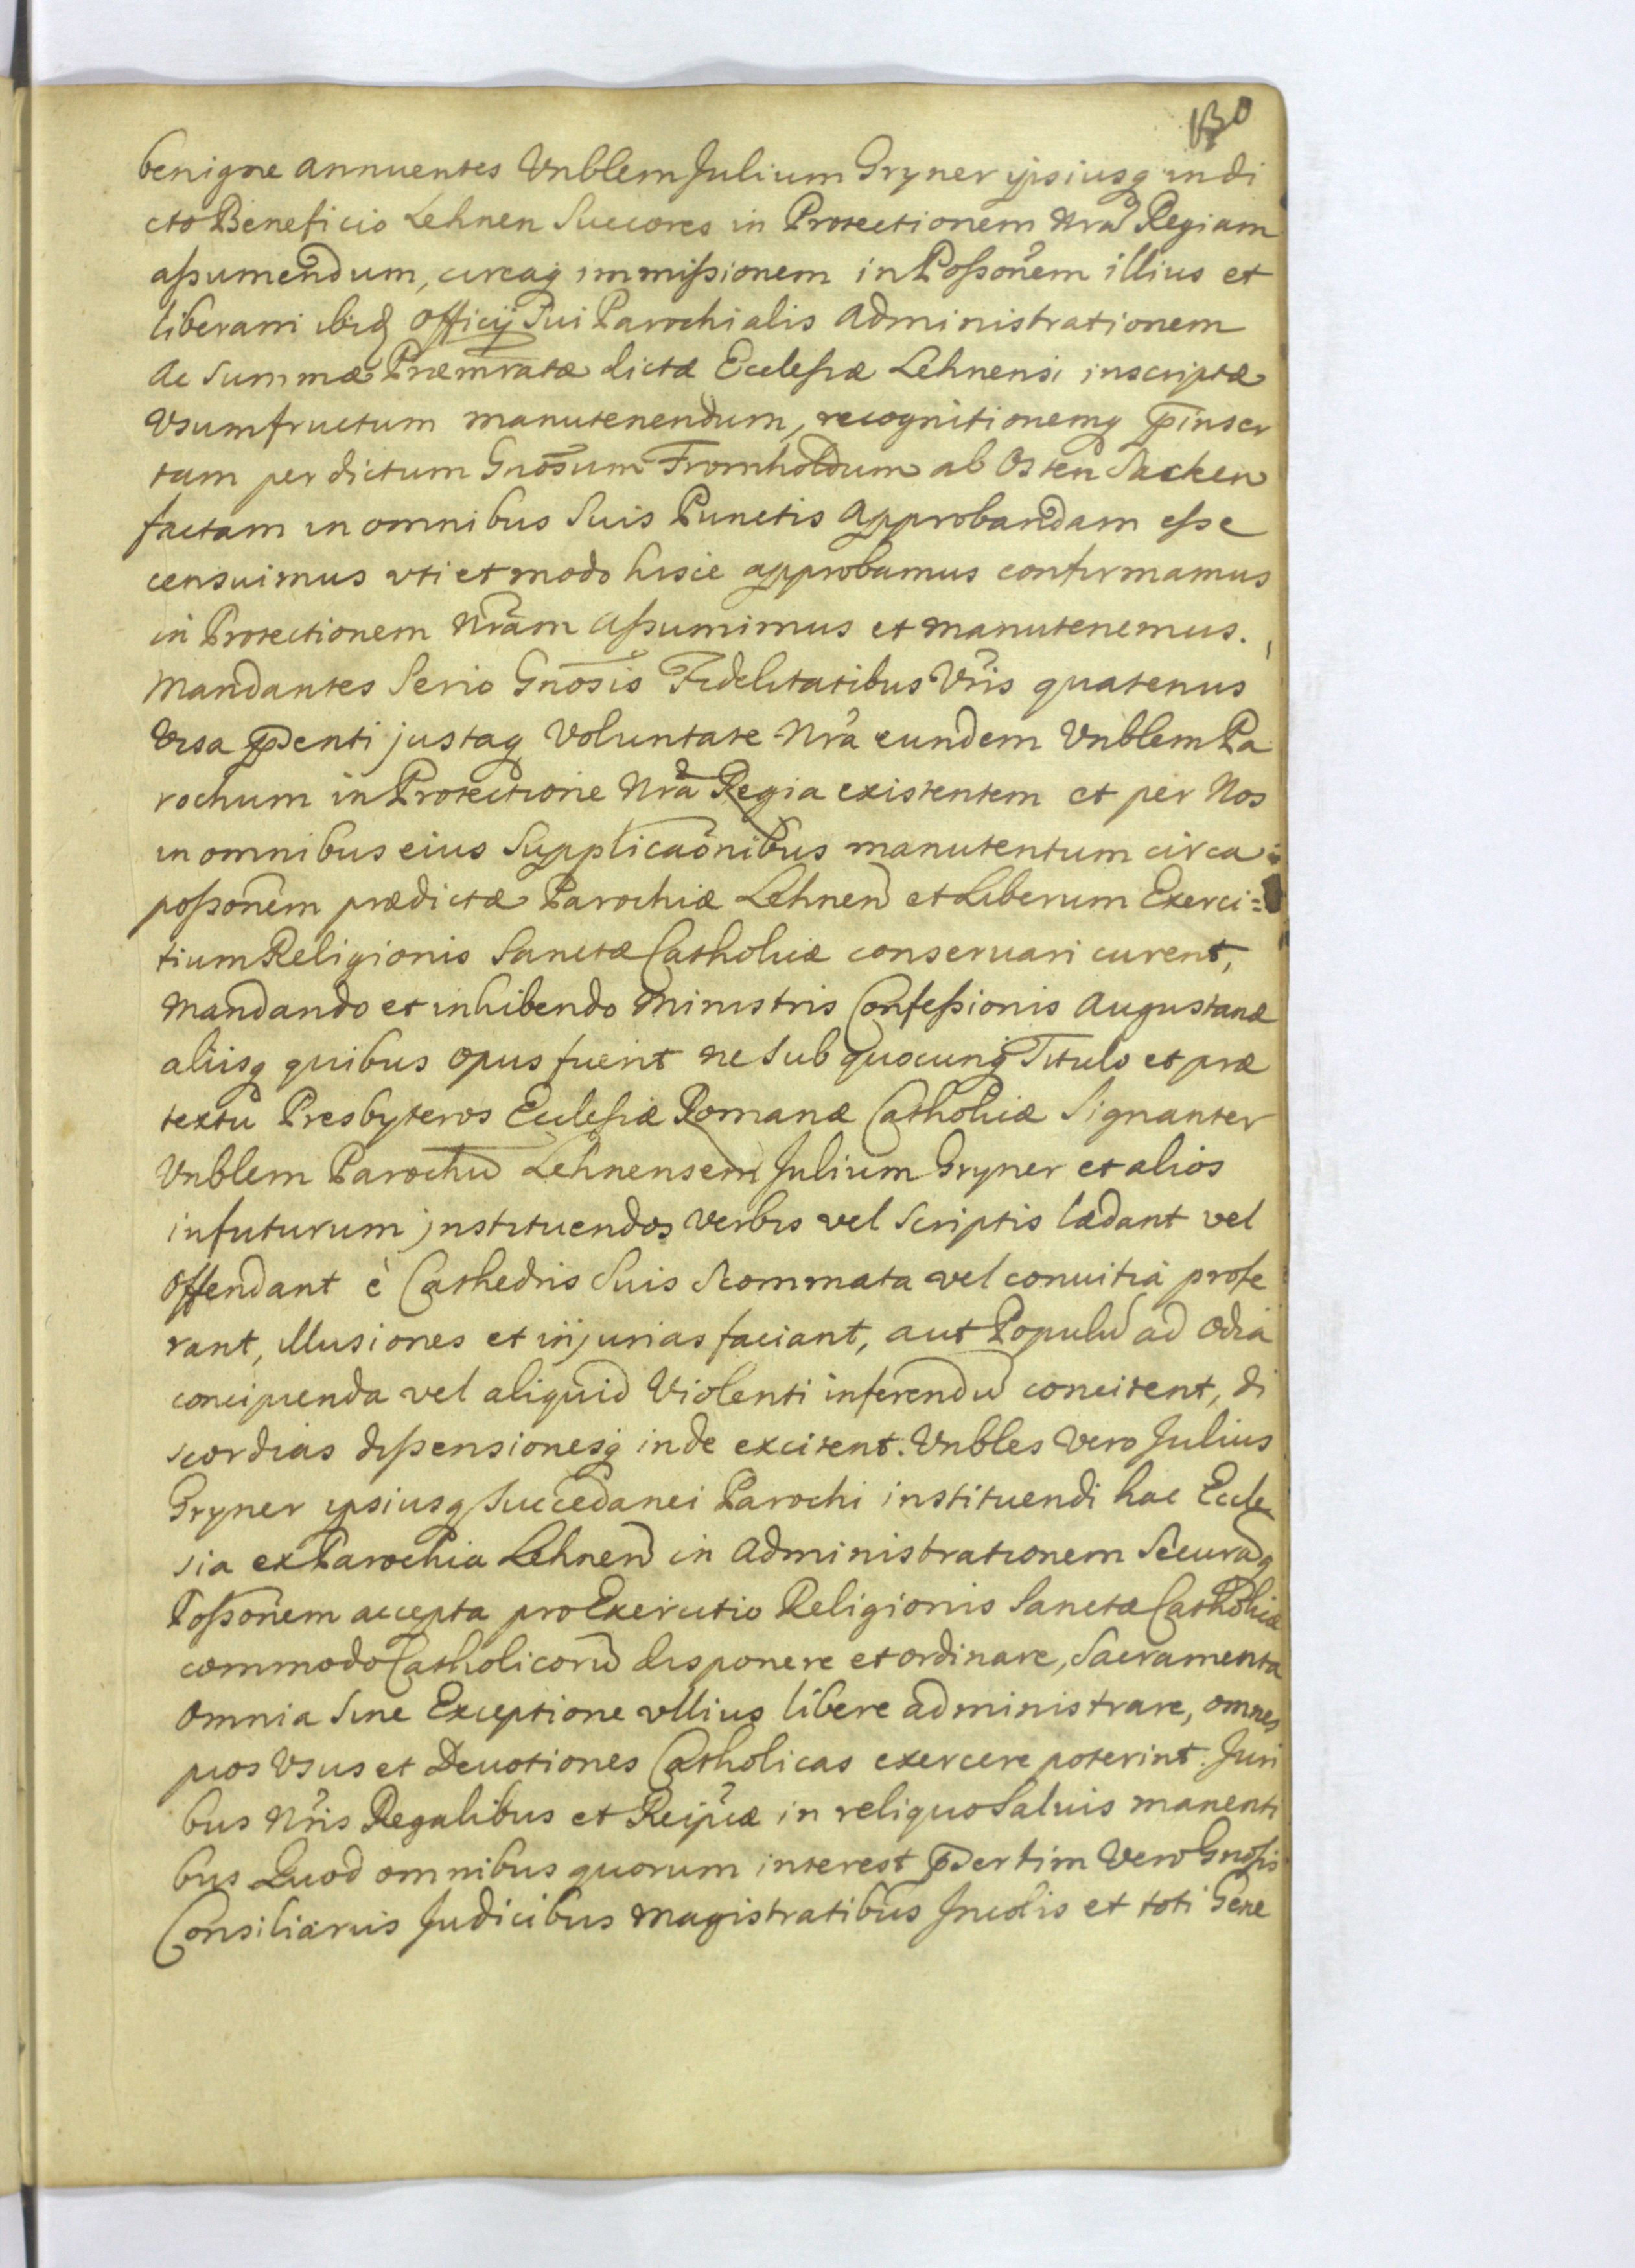 130
benigne annuentes Vnblem Julium Gryner ipsiusq indi
cto Beneficio Lehnen Succores in Protectionem Nrã Regiam
aſsumendum, circaq immiſsionem in Poſsonẽm illius et
liberam ibid Officij Sui Parochialis Administrationem
Ac Summæ Præmratæ dictæ Eccleſiæ Lehnensi inscriptæ
Vsumfructum manutenendum, recognitionemq p̄inser
tam per dictum Gnōsum Fromholdum ab Osten Sacken
factam in omnibus Suis Punctis Approbandam eſse
censuimus vti et modo hisce approbamus confirmamus
in Protectionem Nrãm Aſsumimus et manutenemus.
Mandantes Serio Gnōsis Fidelitatibus Vr̃is quatenus
Visa p̄senti justaq Voluntate Nrã eundem Vnblem Pa
rochum in Protectione Nrã Regia existentem et per Nos
in omnibus eius Supplicaõnibus manutentum circa
poſsonẽm prædictæ Parochiæ Lehnen̄ et Liberum Exerci=
tium Religionis Sanctæ Catholicæ conseruari curent,
Mandando et inhibendo Ministris Confeſsionis Augustanæ
aliisq quibus opus fuerit ne sub quocunq Titulo et præ
textu Presbyteros Eccleſiæ Romanæ Catholicæ Signanter
Vnblem Parochū Lehnensem Julium Gryner et alios
infuturum jnstituendos verbis vel Scriptis lædant vel
Offendant è Cathedris Suis Scommata vel conuitia profe
rant, illusiones et injurias faciant, aut Populū ad Odia
concipienda vel aliquid Violenti inferendū concitent, di
scordias diſsensionesq inde excitent. Vnbles Vero Julius
Gryner ipsiusq Succedanei Parochi instituendi hac Eccle
sia ex Parochia Lehnen̄ in Administrationem Securāq
Poſsonẽm accepta pro Exercitio Religionis Sanctæ Catholicæ
commodo Catholicorū disponere et ordinare, Sacramenta
Omnia Sine Exceptione vllius libere administrare, omnes
pios Vsus et Deuotiones Catholicas exercere poterint. Juri
bus Nr̃is Regalibus et Reip̃cæ in reliquo Saluis manenti
bus Quod omnibus quorum interest p̄sertim Vero Gnoſis
Consiliariis Judicibus Magistratibus Jncolis et toti Gene